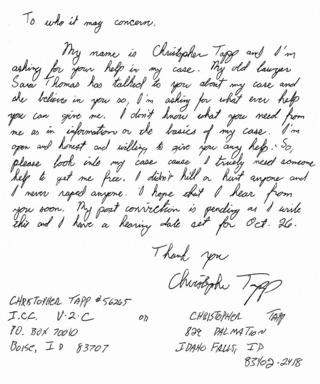 To who it may concern,
My name is Christopher Tapp and I'm
asking for your help in my case. My old lawyer
Sara Thomas has talked to you about my case and
she believe in you so, I'm asking for what ever help
you can give me. I don't know what you need from
me as in information or the basics of my case. I'm
open and honest and willing to give you any help. So,
please look into my case cause I truely need someone
help to get me free. I didn't kill or hurt anyone and
I never raped anyone. I hope that I hear from
you soon. My post conviction is pending as I write
this and I have a hearing date set for Oct. 26.
Thank you
Christopher Tapp
CHRISTOPHER TAPP #56265
I.C.C. V-2-C
P.O. BOX 70010
BOISE, ID 83707
on
CHRISTOPHER TAPP
829 DALMATION
IDAHO FALLS, ID
83402-2418